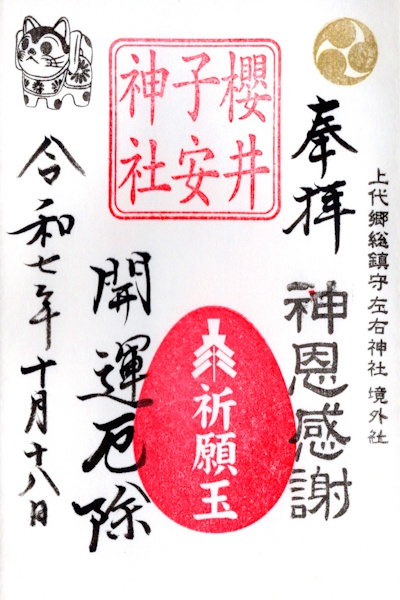 上代郷総鎮守左右神社 境外社
奉拝
神恩感謝
櫻井
子安
神社
祈願玉
開運厄除
令和七年十月十八日